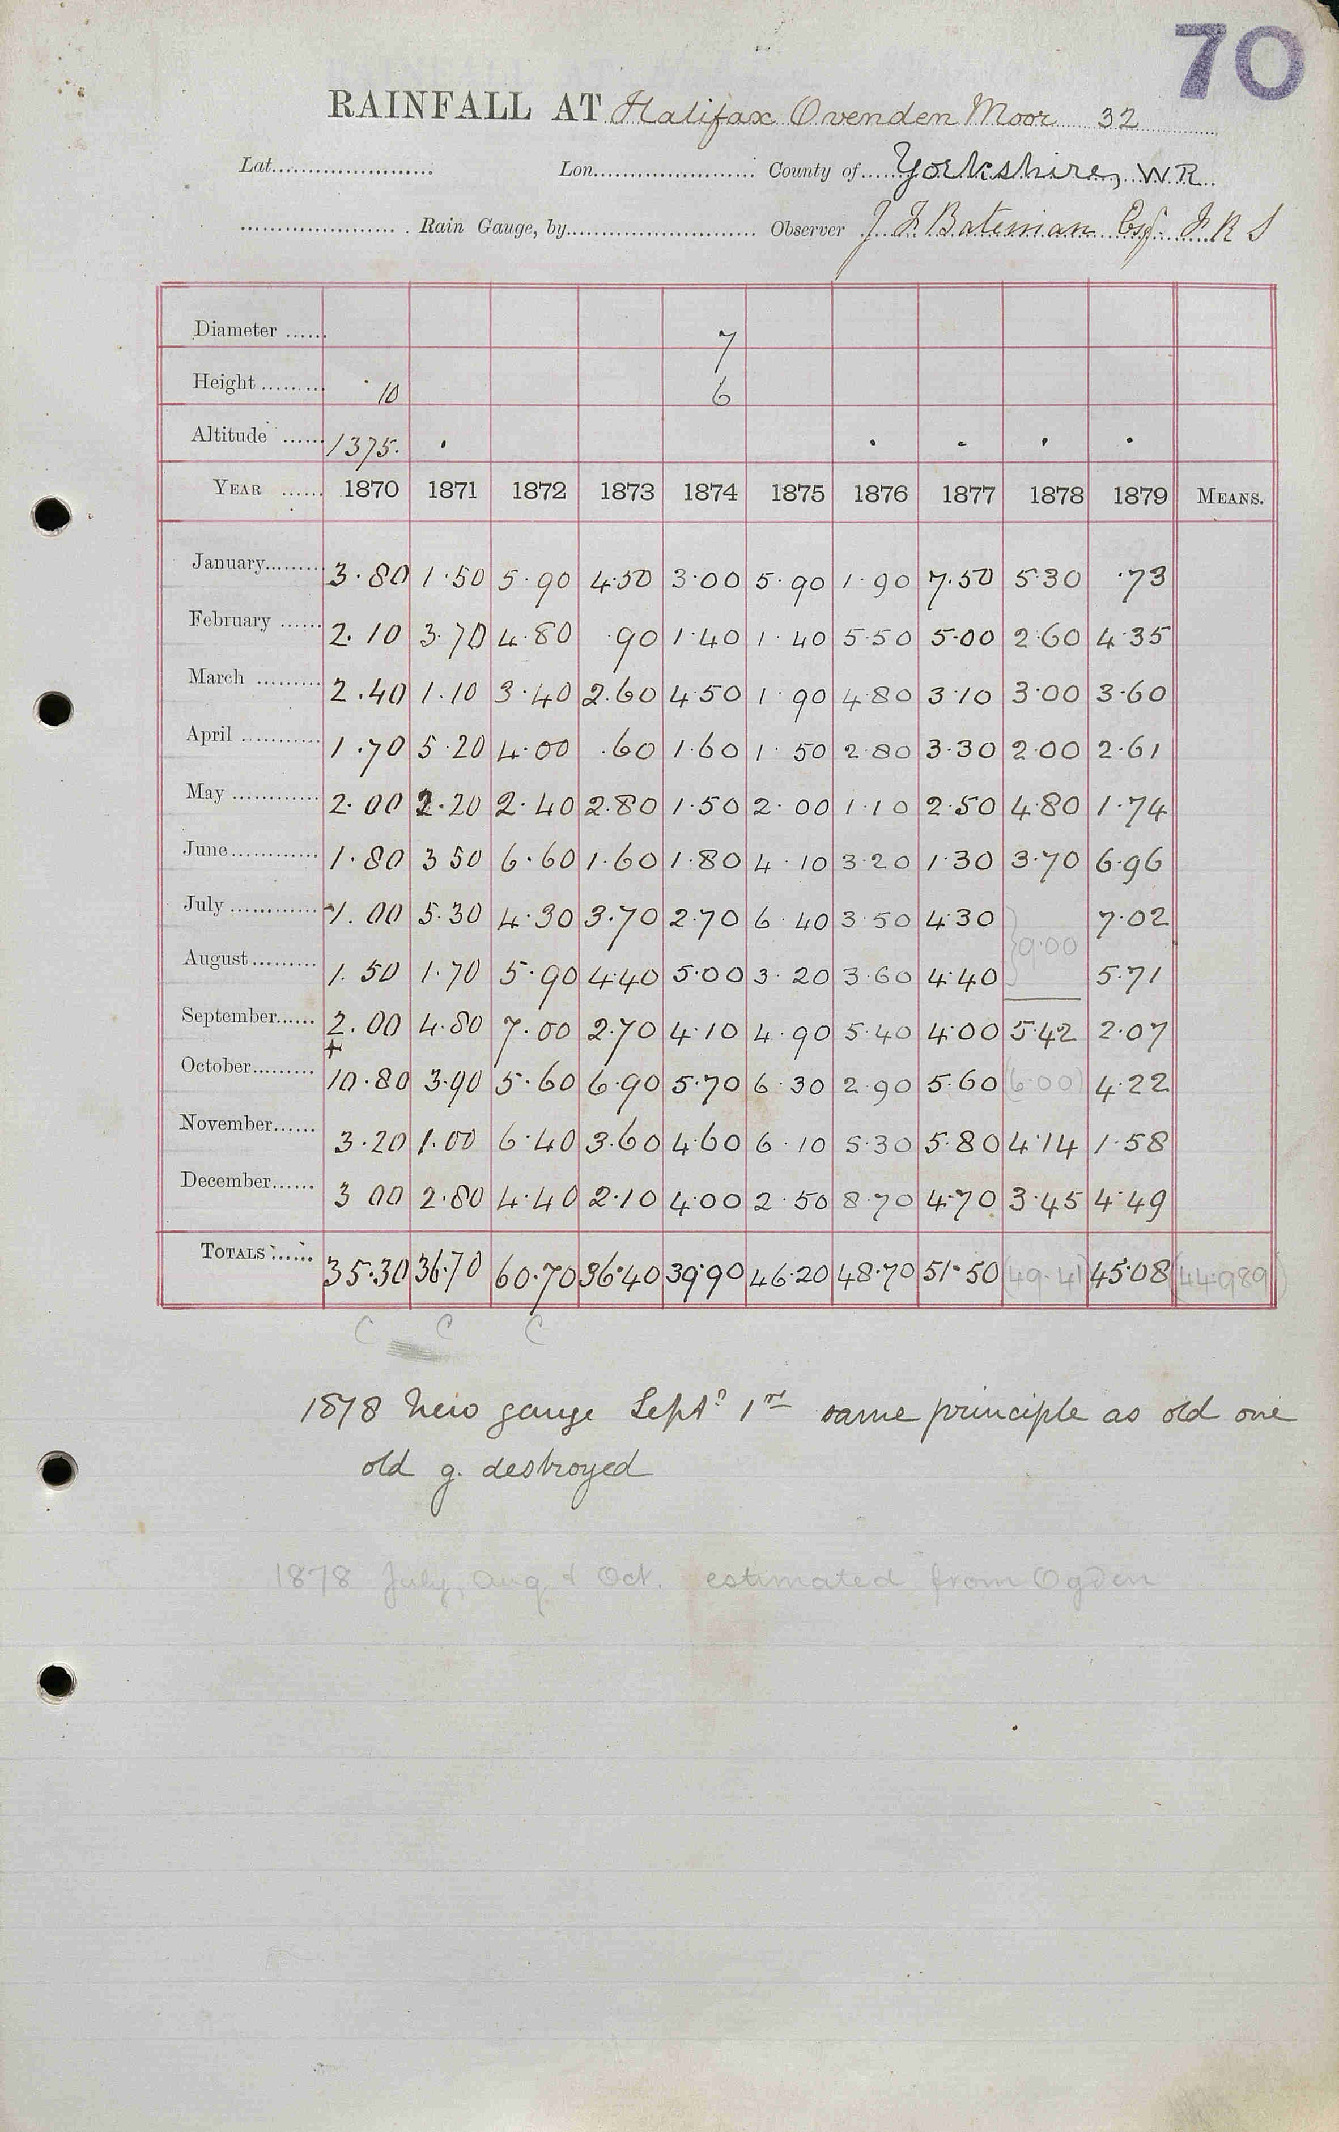 70
RAINFALL AT Halifax Ovenden Moor 32
Lat. Lon. County of Yorkshire, WR
Rain Gauge, by Observer J F Bateman Esq F R S
Diameter 7
Height 10 6
Altitude 1375.
YEAR 1870 1871 1872 1873 1874 1875 1876 1877 1878 1879 MEANS.
January 3.80 1.50 5.90 4.50 3.00 5.90 1.90 7.50 5.30 .73
February 2.10 3.70 4.80 .90 1.40 1.40 5.50 5.00 2.60 4.35
March 2.40 1.10 3.40 2.60 4.50 1.90 4.80 3.10 3.00 3.60
April 1.70 5.20 4.00 .60 1.60 1.50 2.80 3.30 2.00 2.61
May 2.00 2.20 2.40 2.80 1.50 2.00 1.10 2.50 4.80 1.74
June 1.80 3 50 6.60 1.60 1.80 4.10 3.20 1.30 3.70 6.96
July 1.00 5.30 4.30 3.70 2.70 6 40 3.50 4.30 7.02
August 1.50 1.70 5.90 4.40 5.00 3.20 3.60 4.40 }9.00 5.71
September 2.00 4.80 7.00 2.70 4.10 4.90 5.40 4.00 5.42 2.07
October +10.80 3.90 5.60 6.90 5.70 6.30 2.90 5.60 (6.00) 4.22
November 3.20 1.00 6.40 3.60 4.60 6.10 5.30 5.80 4.14 1.58
December 3 00 2.80 4.40 2.10 4.00 2.50 8.70 4.70 3.45 4.49
TOTALS 35.30 36.70 60.70 36.40 39.90 46.20 48.70 51.50 (49.41) 45.08 (44.989)
C C C
1878 New gauge Sept. 1st same principle as old one
old g. destroyed
1878 July, Aug & Oct. estimated from Ogden